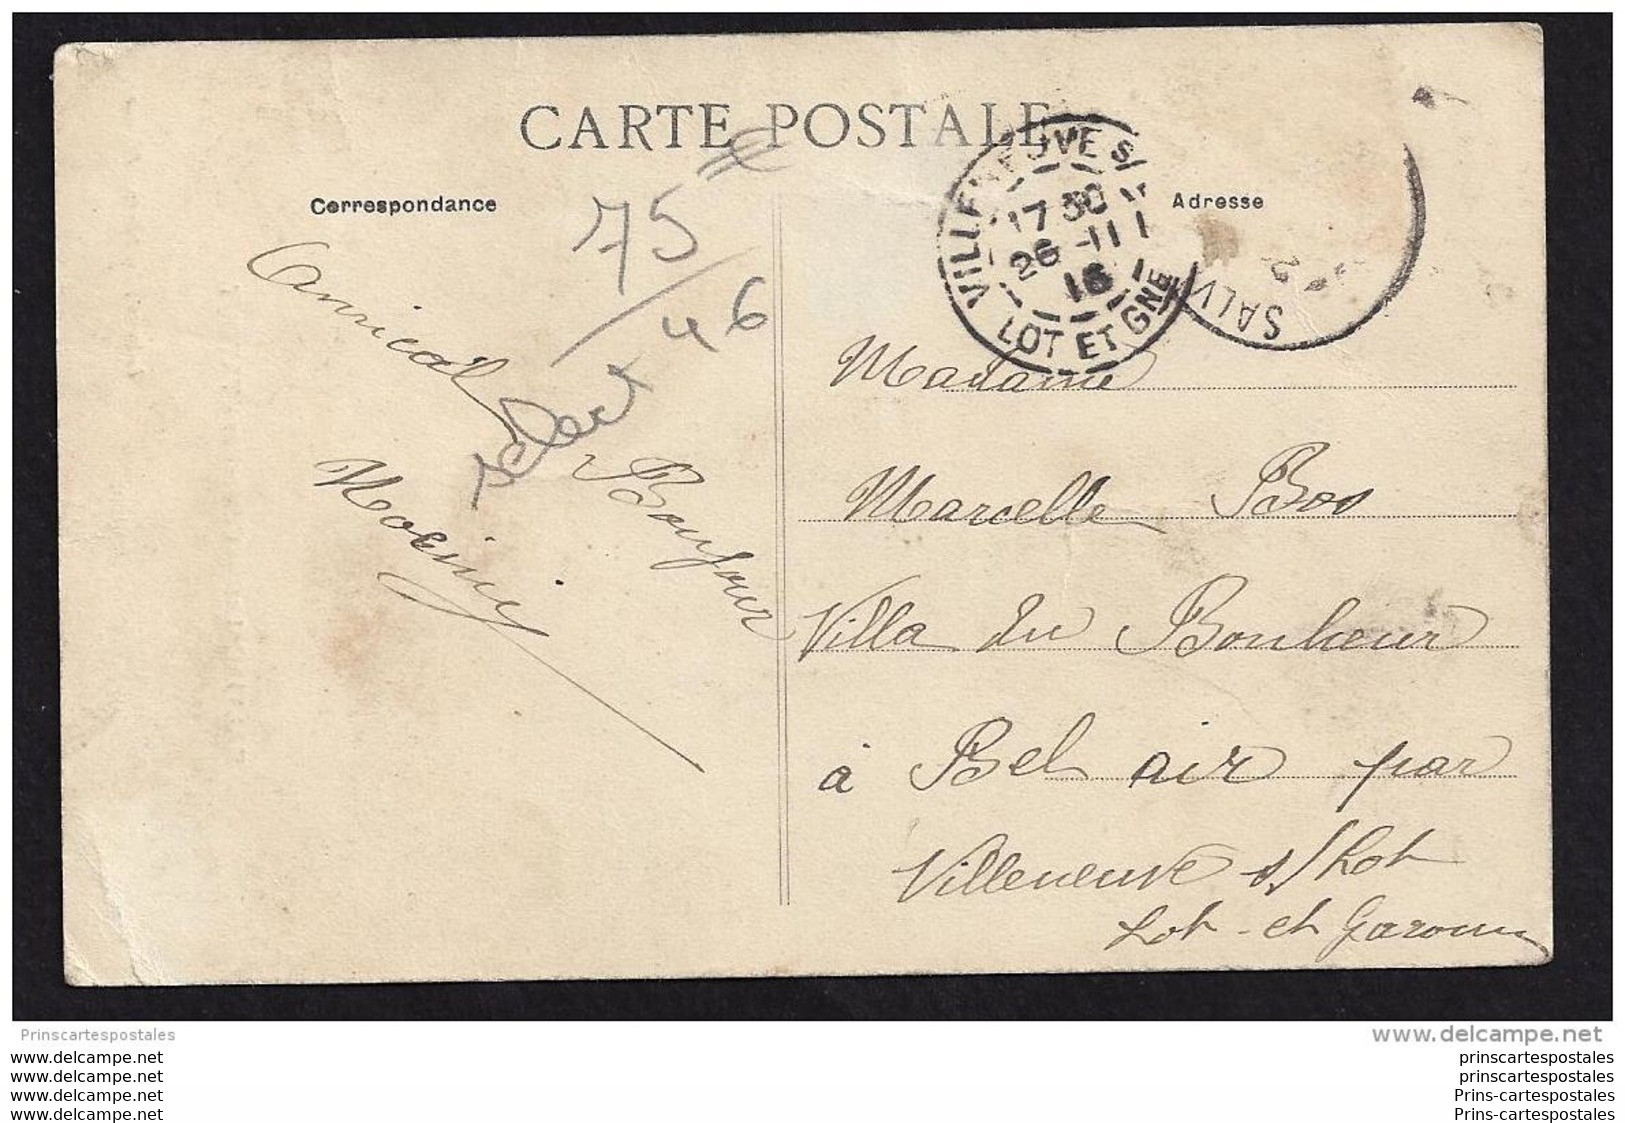 CARTE POSTALE
Correspondance
Adresse
75 €
46
select
VILLENEUVE S
17 30
26 - 11
16
LOT ET GNE
SALV
2
Amical
Bonjour
Madame
Marcelle Bos
Villa du Bonheur
à Bel air par
Villeneuve s/Lot
Lot-et Garonne
Prinscartespostales
www.delcampe.net
www.delcampe.net
prinscartespostales
www.delcampe.net
prinscartespostales
www.delcampe.net
Prins-cartespostales
www.delcampe.net
Prins-cartespostales